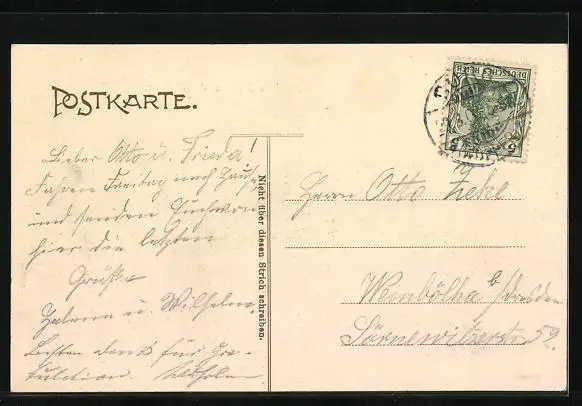 POSTKARTE.
Lieber Otto u. Frieda!
Fahren Freitag nach Haus
und senden Euch von
hier die letzten
Grüße
u. Wilhelm.
Besten Dank für Gra-
tulation. Wilhelm
Nicht über diesen Strich schreiben.
DEUTSCHES REICH
5 5
Herrn Otto
Weinböhla b/Dresden
Sörnewitzerstr. 59.